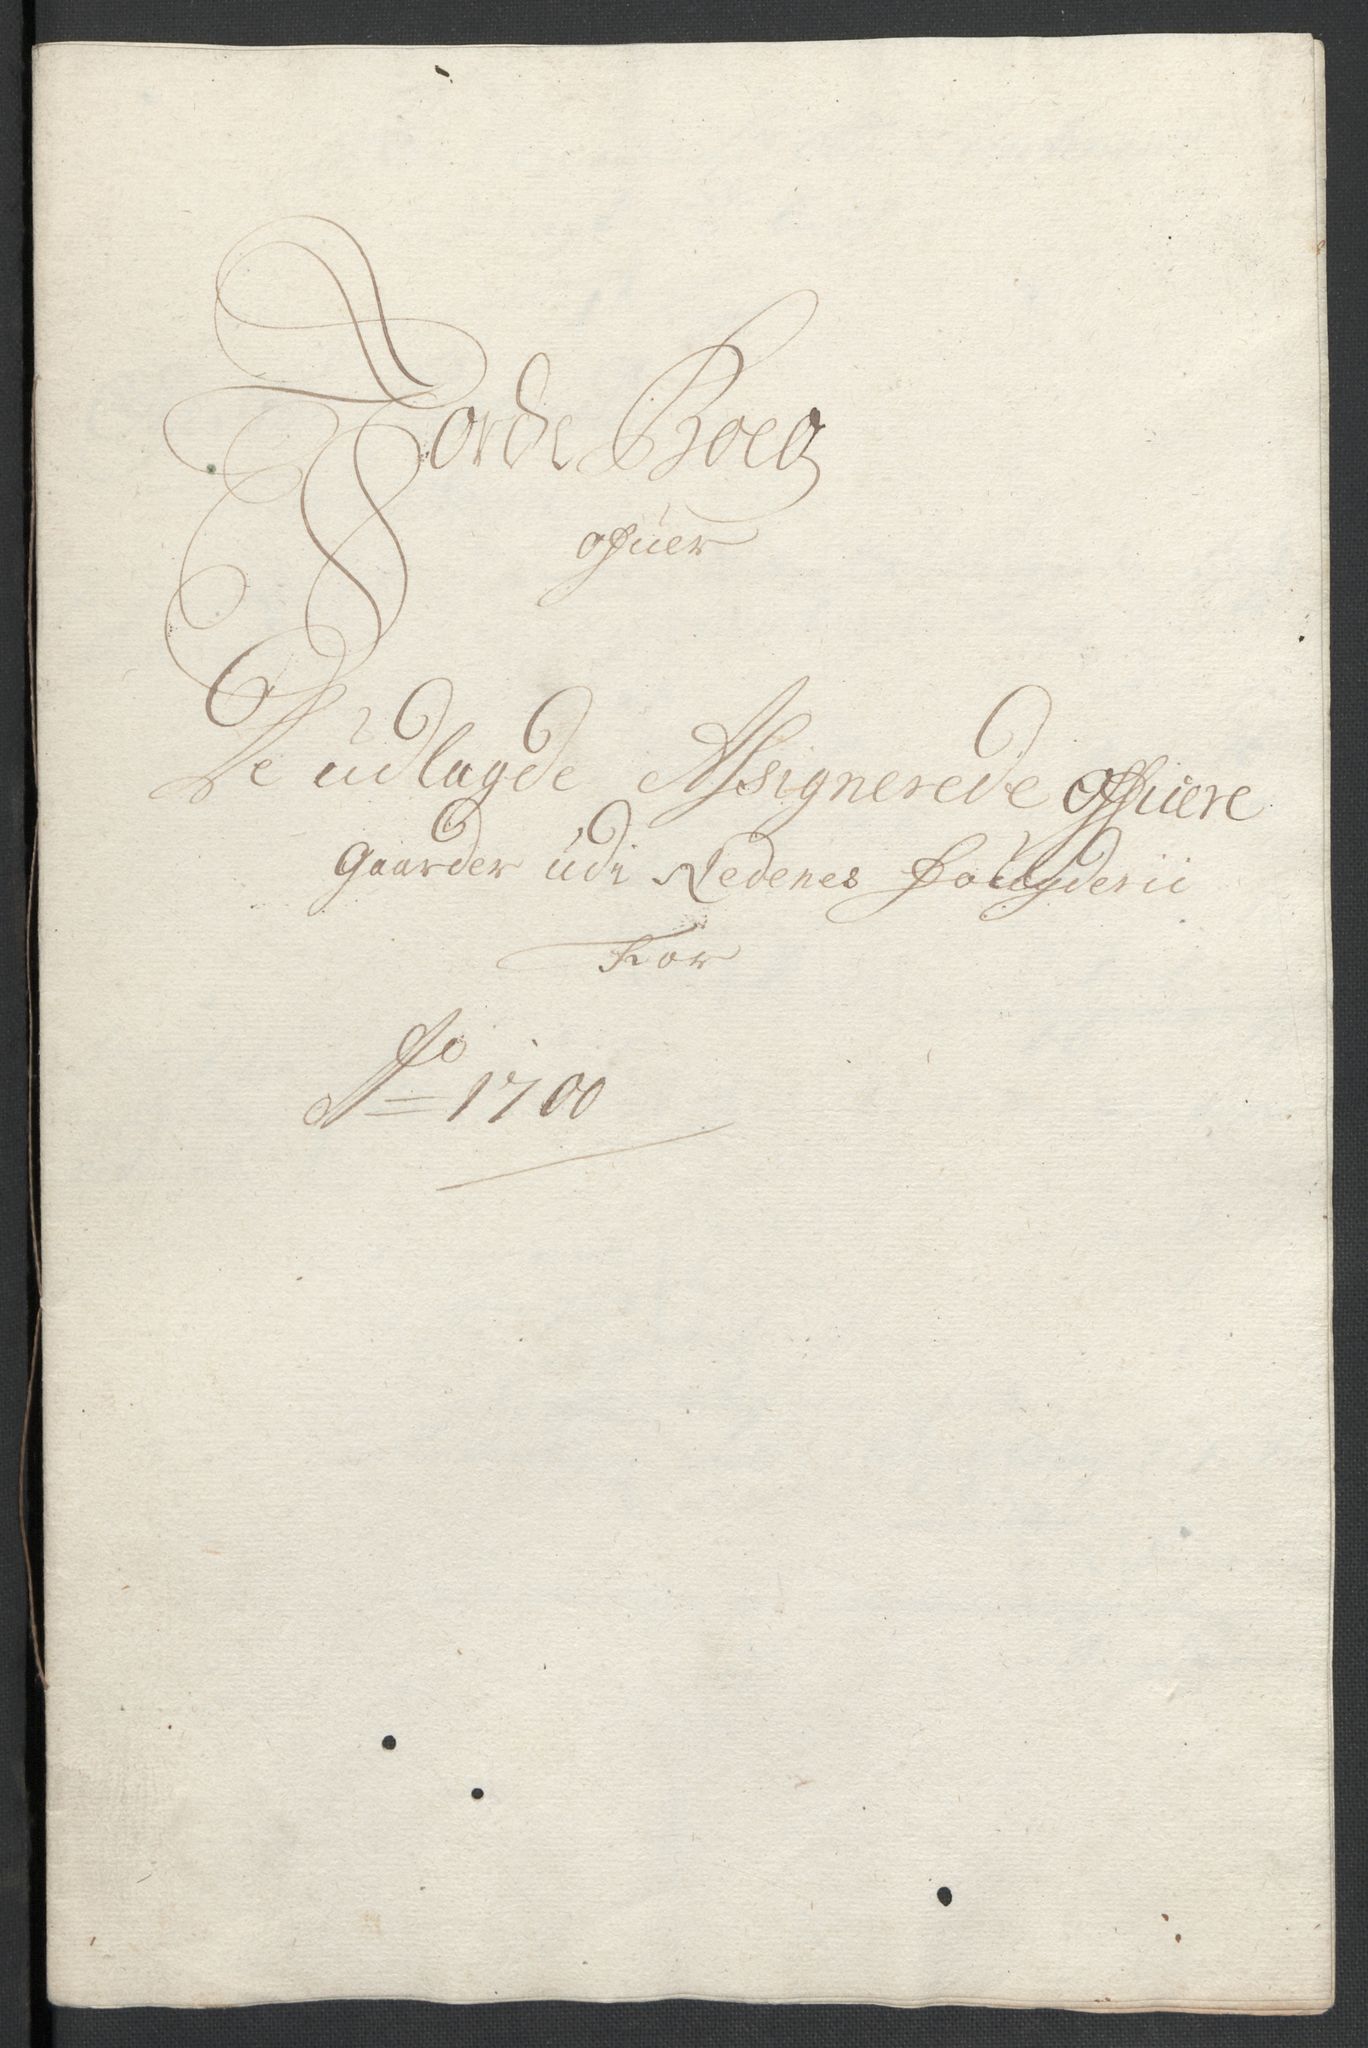 Jorde Boeg
offuer
De udlagde Assignerede Officere
Gaarder udi Nedenes Fougderii
For
Ao 1700